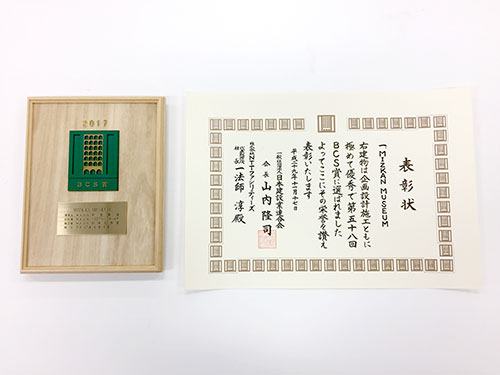 2017
BCS賞
表彰状
一 MIZKAN MUSEUM
右建物は企画設計施工ともに
極めて優秀で第五十八回
BCS賞に選ばれました
よってここにその栄誉を讃え
表彰いたします
平成二十九年十一月十七日
一般社団法人日本建設業連合会
会長 山内隆司
株式会社NTTファシリティーズ
代表取締役
社長 一法師 淳 殿